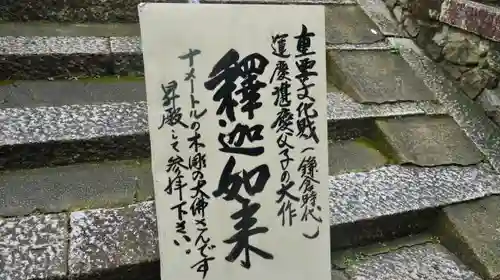 重要文化財（鎌倉時代）
運慶湛慶父子の大作
釋迦如来
十メートルの木彫の大佛さんです
昇殿して参拝下さい。